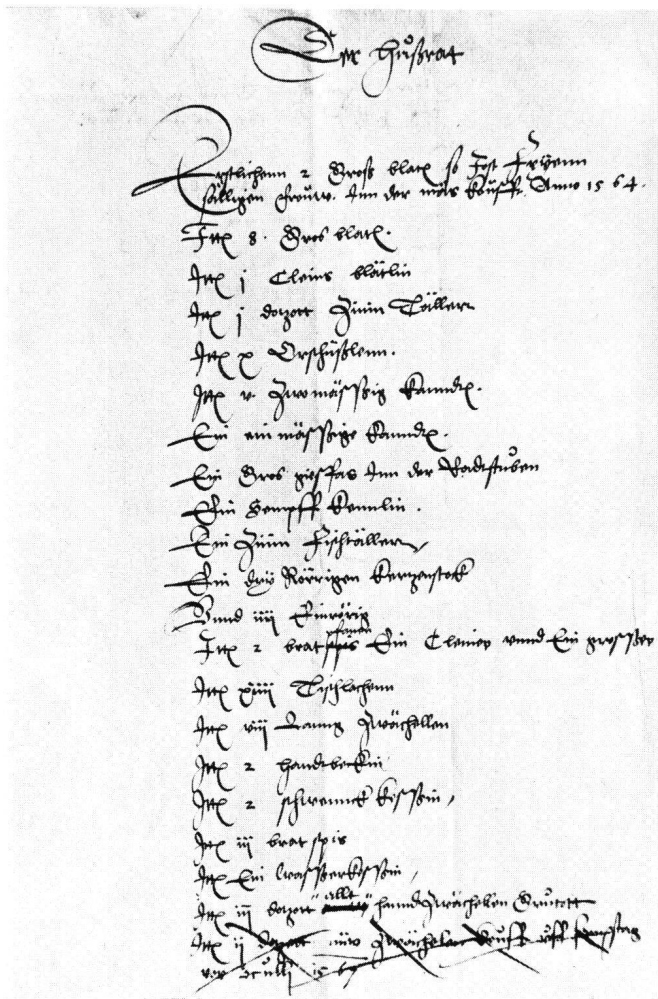 Der Hußrat
Erstlichenn 2 Groß blat so Jost
sälligen frouw Inn der mäs koufft Anno 1564.
Item 8. Gros blat.
Item j Cleins blätlin
Item j dozott Zinin Täller
Item x Orschüßlenn.
Item v. Zwomässig kannd.
Ein ein mässige kannd.
Ein Gros giesfas Inn der Radtstuben
Ein Sempff kennlin.
Ein Zinin fischtäller
Ein dry Rörrigen kerzenstok
Vnnd iiij Einrörig
Item 2 bratpfanen Ein Cleiney vnnd Ein grosßey
Item xiiij Tischlachenn
Item viij Lanng Zwächellen
Item 2 handtbeckin
Item 2 schwenck kessin
Item iij brat spis
Item Ein Wasserkessin
Item iij dozott allt hanndzwächellen
Item ij dozott nüw Zwächelen koufft vff
vor 1567